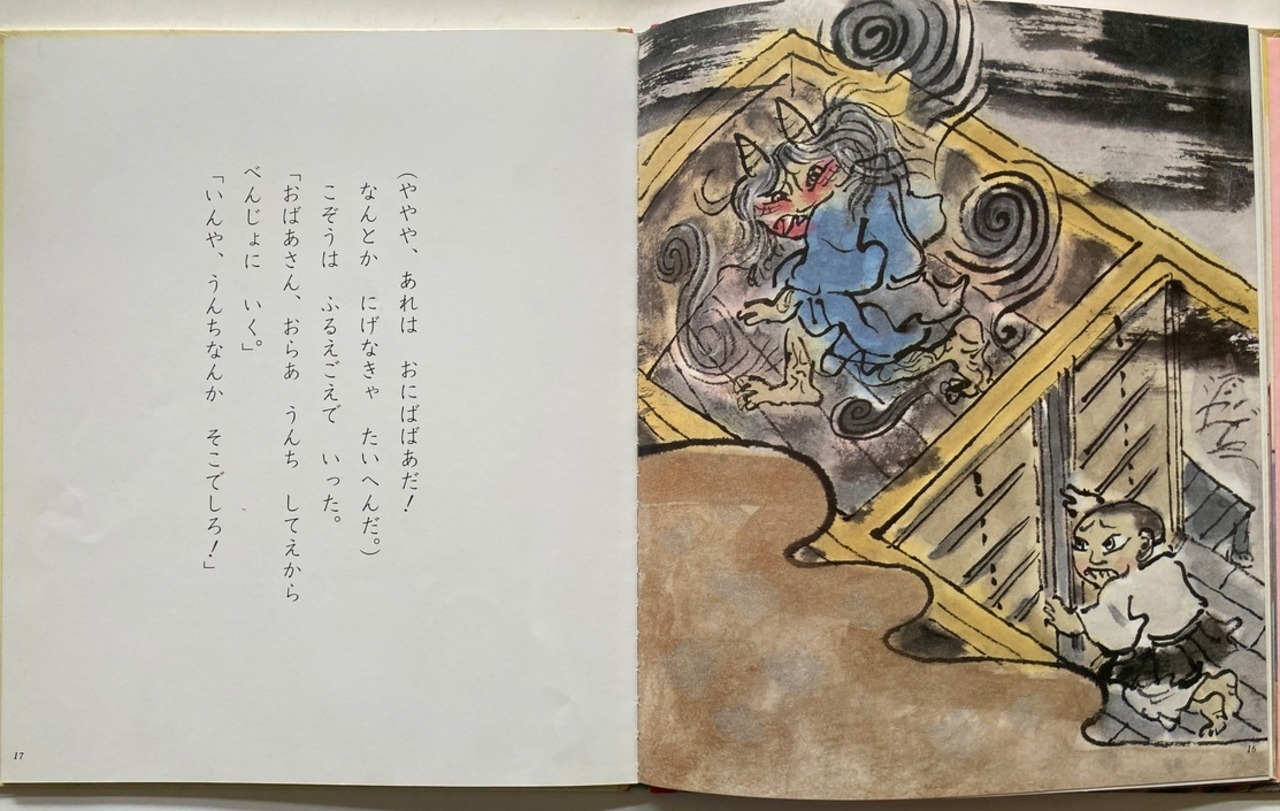 (ややや、あれは　おにばばあだ！
なんとか　にげなきゃ　たいへんだ。)
こぞうは　ふるえごえで　いった。
「おばあさん、おらあ　うんち　してえから
べんじょに　いく。」
「いんや、うんちなんか　そこでしろ！」
17
16